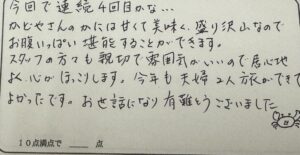 今回で連続4回目かな…
かどやさんのかには甘くて美味く、盛り沢山なので
お腹いっぱい堪能することができます。
スタッフの方々も親切で雰囲気がいいので居心地
よく心がほっこりします。今年も夫婦2人旅ができて
よかったです。お世話になり有難うございました
10点満点で ____ 点